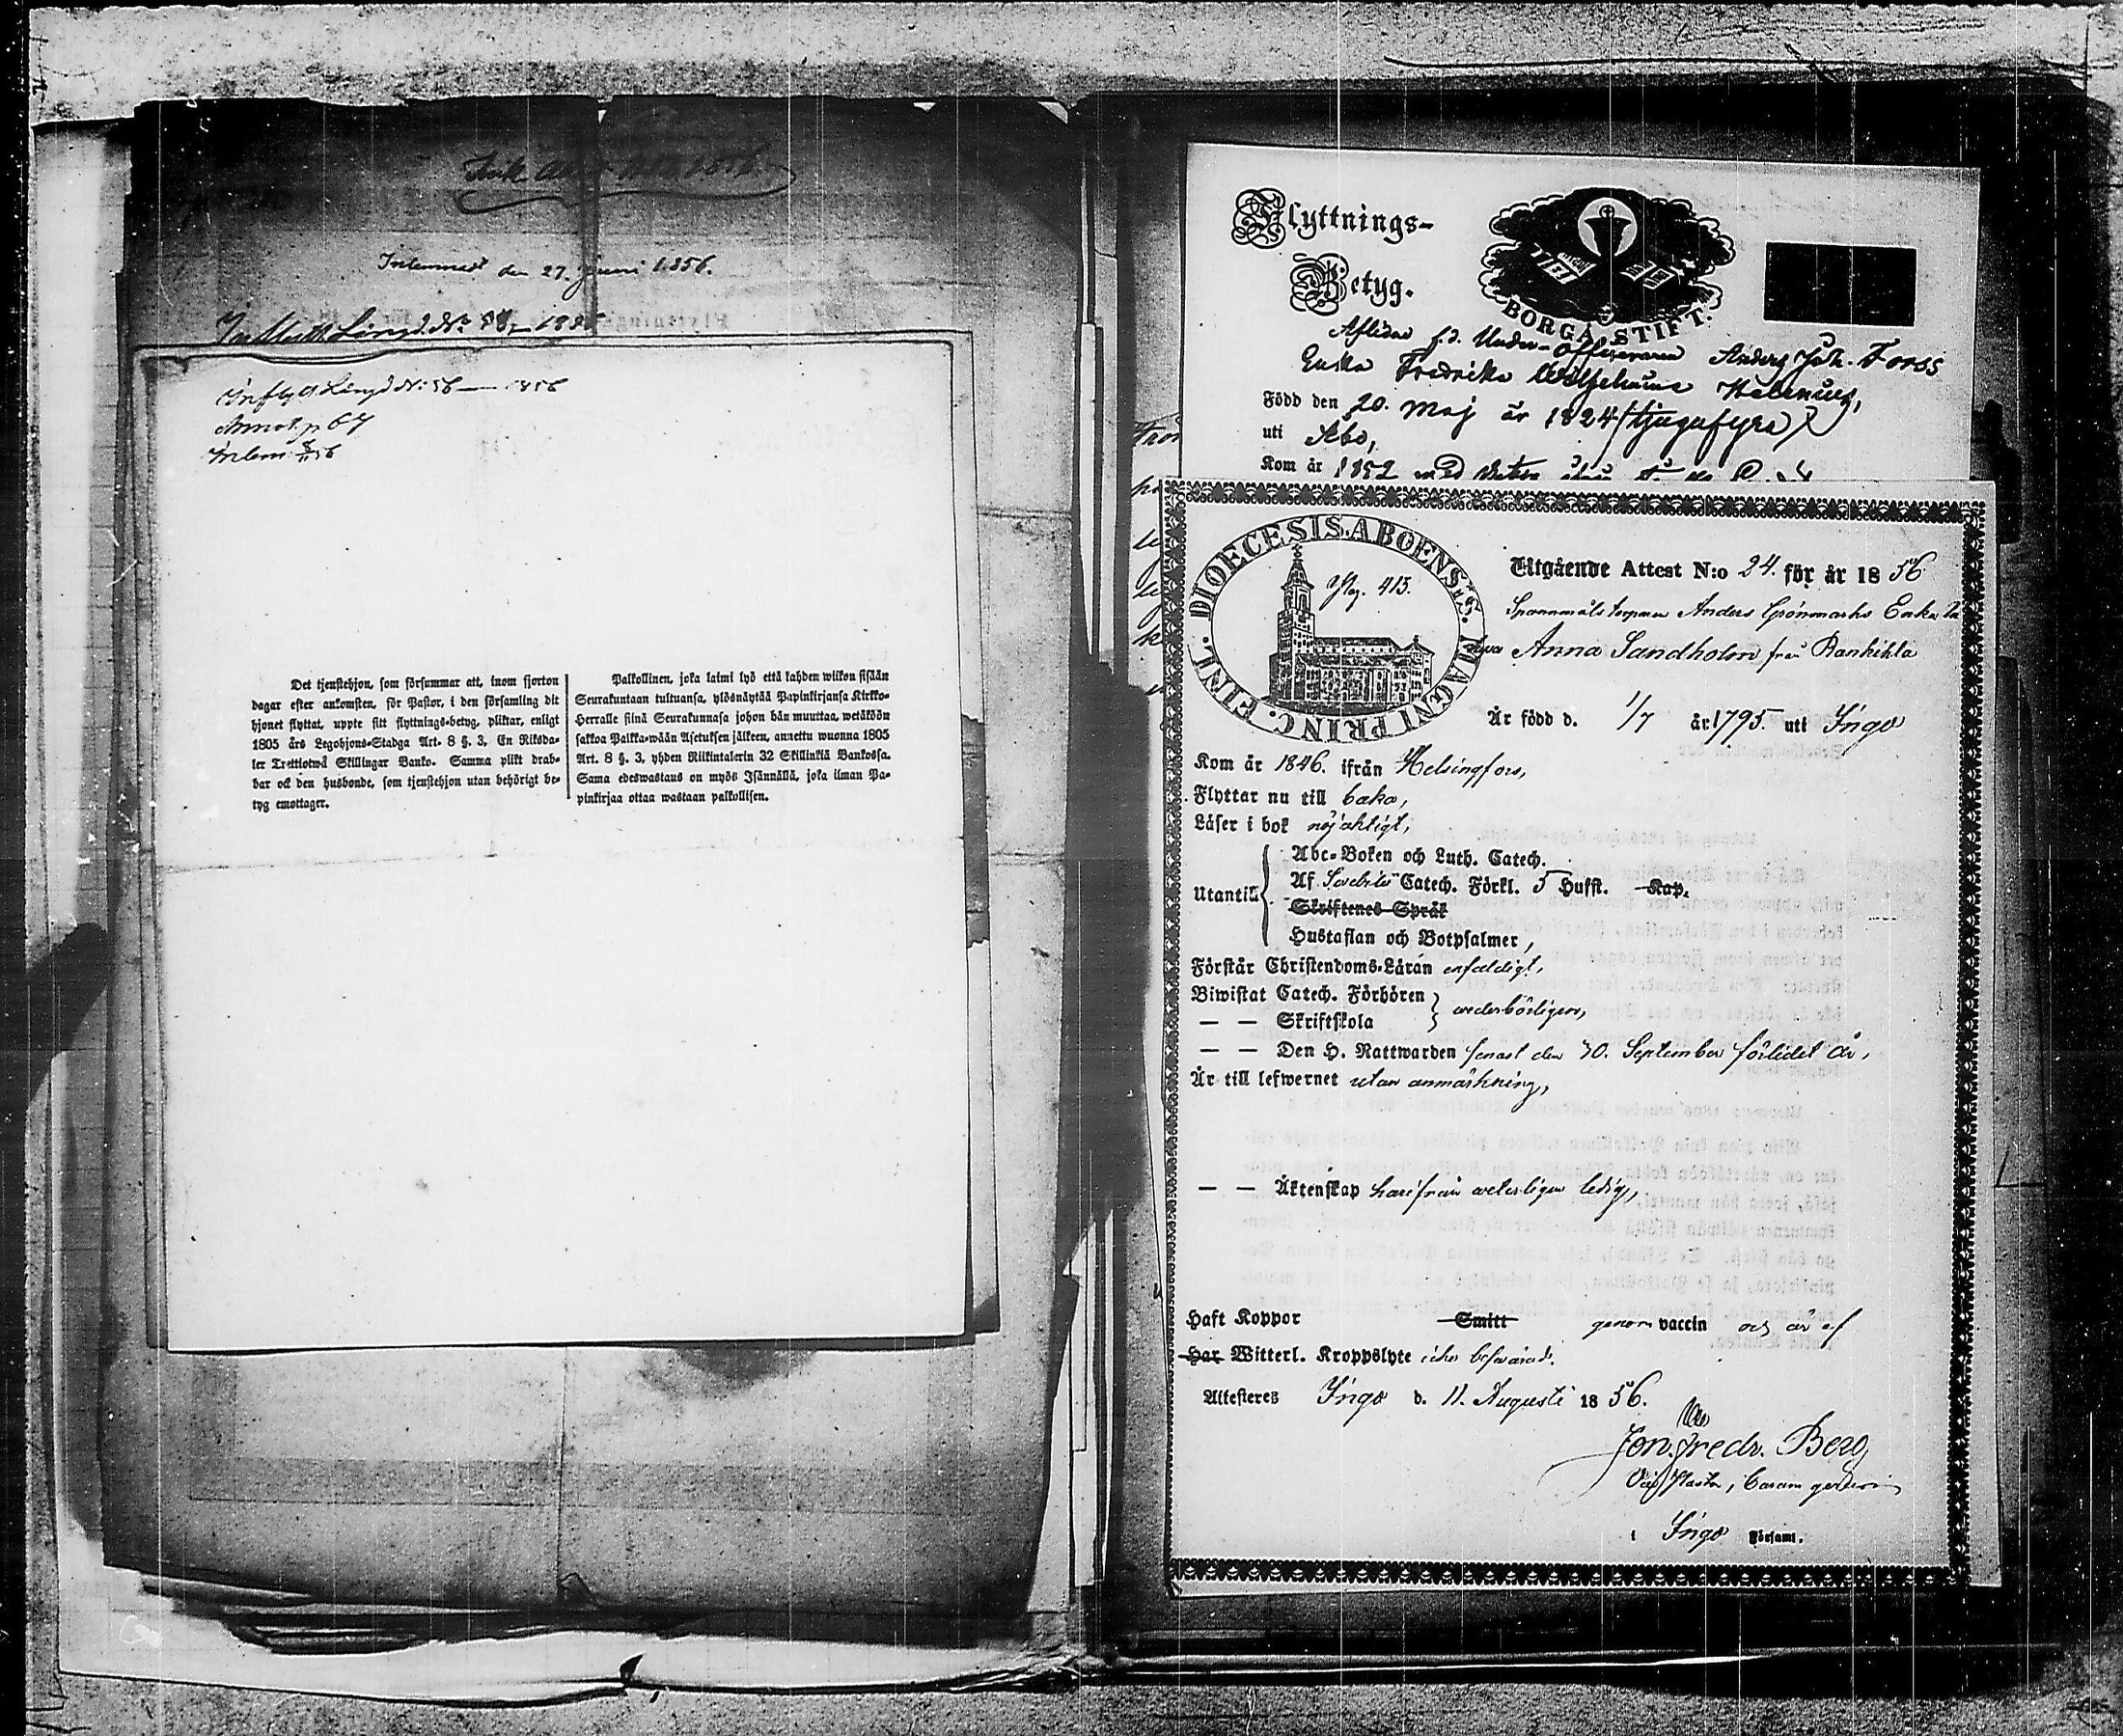 Inlemnadt den 27. Juni 1856.
Inflytt. Längd No
Inflyttn. Längd N: 56 — 1856
Annot. p 67
Inlem.
Det tjenstehjon, som försummar att, inom fjorton
dagar efter ankomsten, för Pastor, i den församling dit
hjonet flyttat, uppte sitt flyttnings-betyg, pliktar, enligt
1805 års Legohjons-Stadga Art. 8 §. 3, En Riksda-
ler Trettiotwå Skillingar Banko. Samma plikt drab-
bar ock den husbonde, som tjenstehjon utan behörigt be-
tyg emottager.
Palkollinen, joka laimi lyö että kahden wiikon sisään
Seurakuntaan tultuansa, ylösnäyttää Papinkirjansa Kirkko-
Herralle siinä Seurakunnasa johon hän muuttaa, wetäköön
sakkoa Palkka-wään Asetuksen jälkeen, annettu wuonna 1805
Art. 8 §. 3, yhden Riikintalerin 32 Skillinkiä Bankossa.
Sama edeswastaus on myös Isännällä, joka ilman Pa-
pinkirjaa ottaa wastaan palkollisen.
Flyttnings-
Betyg.
BORGÅ STIFT.
Aflidne f.d. Under-Officeraren Anders Joh. Forss
Enka Fredrika Wilhelmina Helenius,
Född den 20. Maj år 1824 (tjugufyra)
uti Åbo,
Kom år 1852 med
DIOECESIS. ABOENSIS. MAGNI PRINC. FINL.
Pag. 413.
Utgående Attest N:o 24. för år 1856
Anders Grönmarks Enka
Anna Sandholm från Rankila
Är född d. 1/7 år 1795. uti Ingo
Kom år 1846. ifrån Helsingfors,
Flyttar nu till
Läser i bok nöjaktigt,
Utantill
Abc-Boken och Luth. Catech.
Af Svebilii Catech. Förkl. 5 Hufst. Kap.
Skriftenes Språk
Hustaflan och Botpsalmer,
Förstår Christendoms-Läran enfaldigt,
Biwistat Catech. Förhören
— — Skriftskola
wederbörligen,
— — Den H. Nattwarden senast den 30. September förlidet år,
Är till lefwernet utan anmärkning,
— — Äktenskap härifrån veterligen ledig,
Haft Koppor Smitt genom vaccin och är af
Har Witterl. Kroppslyte icke besvärad.
Attesteres Ingo d. 11. Augusti 1856.
Jon. Fredr. Berg
i Ingo Församl.